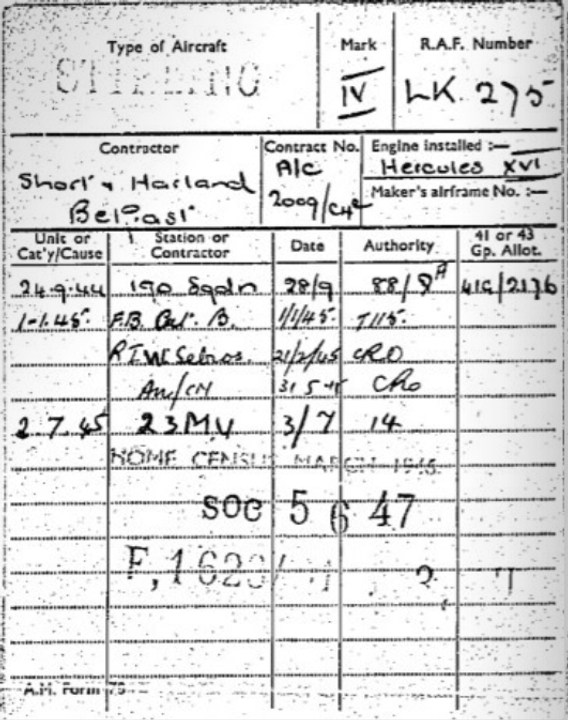 Type of Aircraft
STIRLING
Mark
IV
R.A.F. Number
LK 275
Contractor
Short & Harland
Belfast
Contract No.
A/c
2009/C4c
Engine installed :—
Hercules XVI
Maker's airframe No. :—
Unit or Cat'y/Cause
Station or Contractor
Date
Authority
41 or 43 Gp. Allot.
24.9.44 190 Sqdn 28/9 88/8A 41G/2176
1-1.45. F.B. B. 1/1/45 7115.
21/2/45 CRO
31 5 45 CRO
2 7 45 23MU 3/7 14
HOME CENSUS MARCH 1945
SOC 5 6 47
F,162
A.M. Form 78